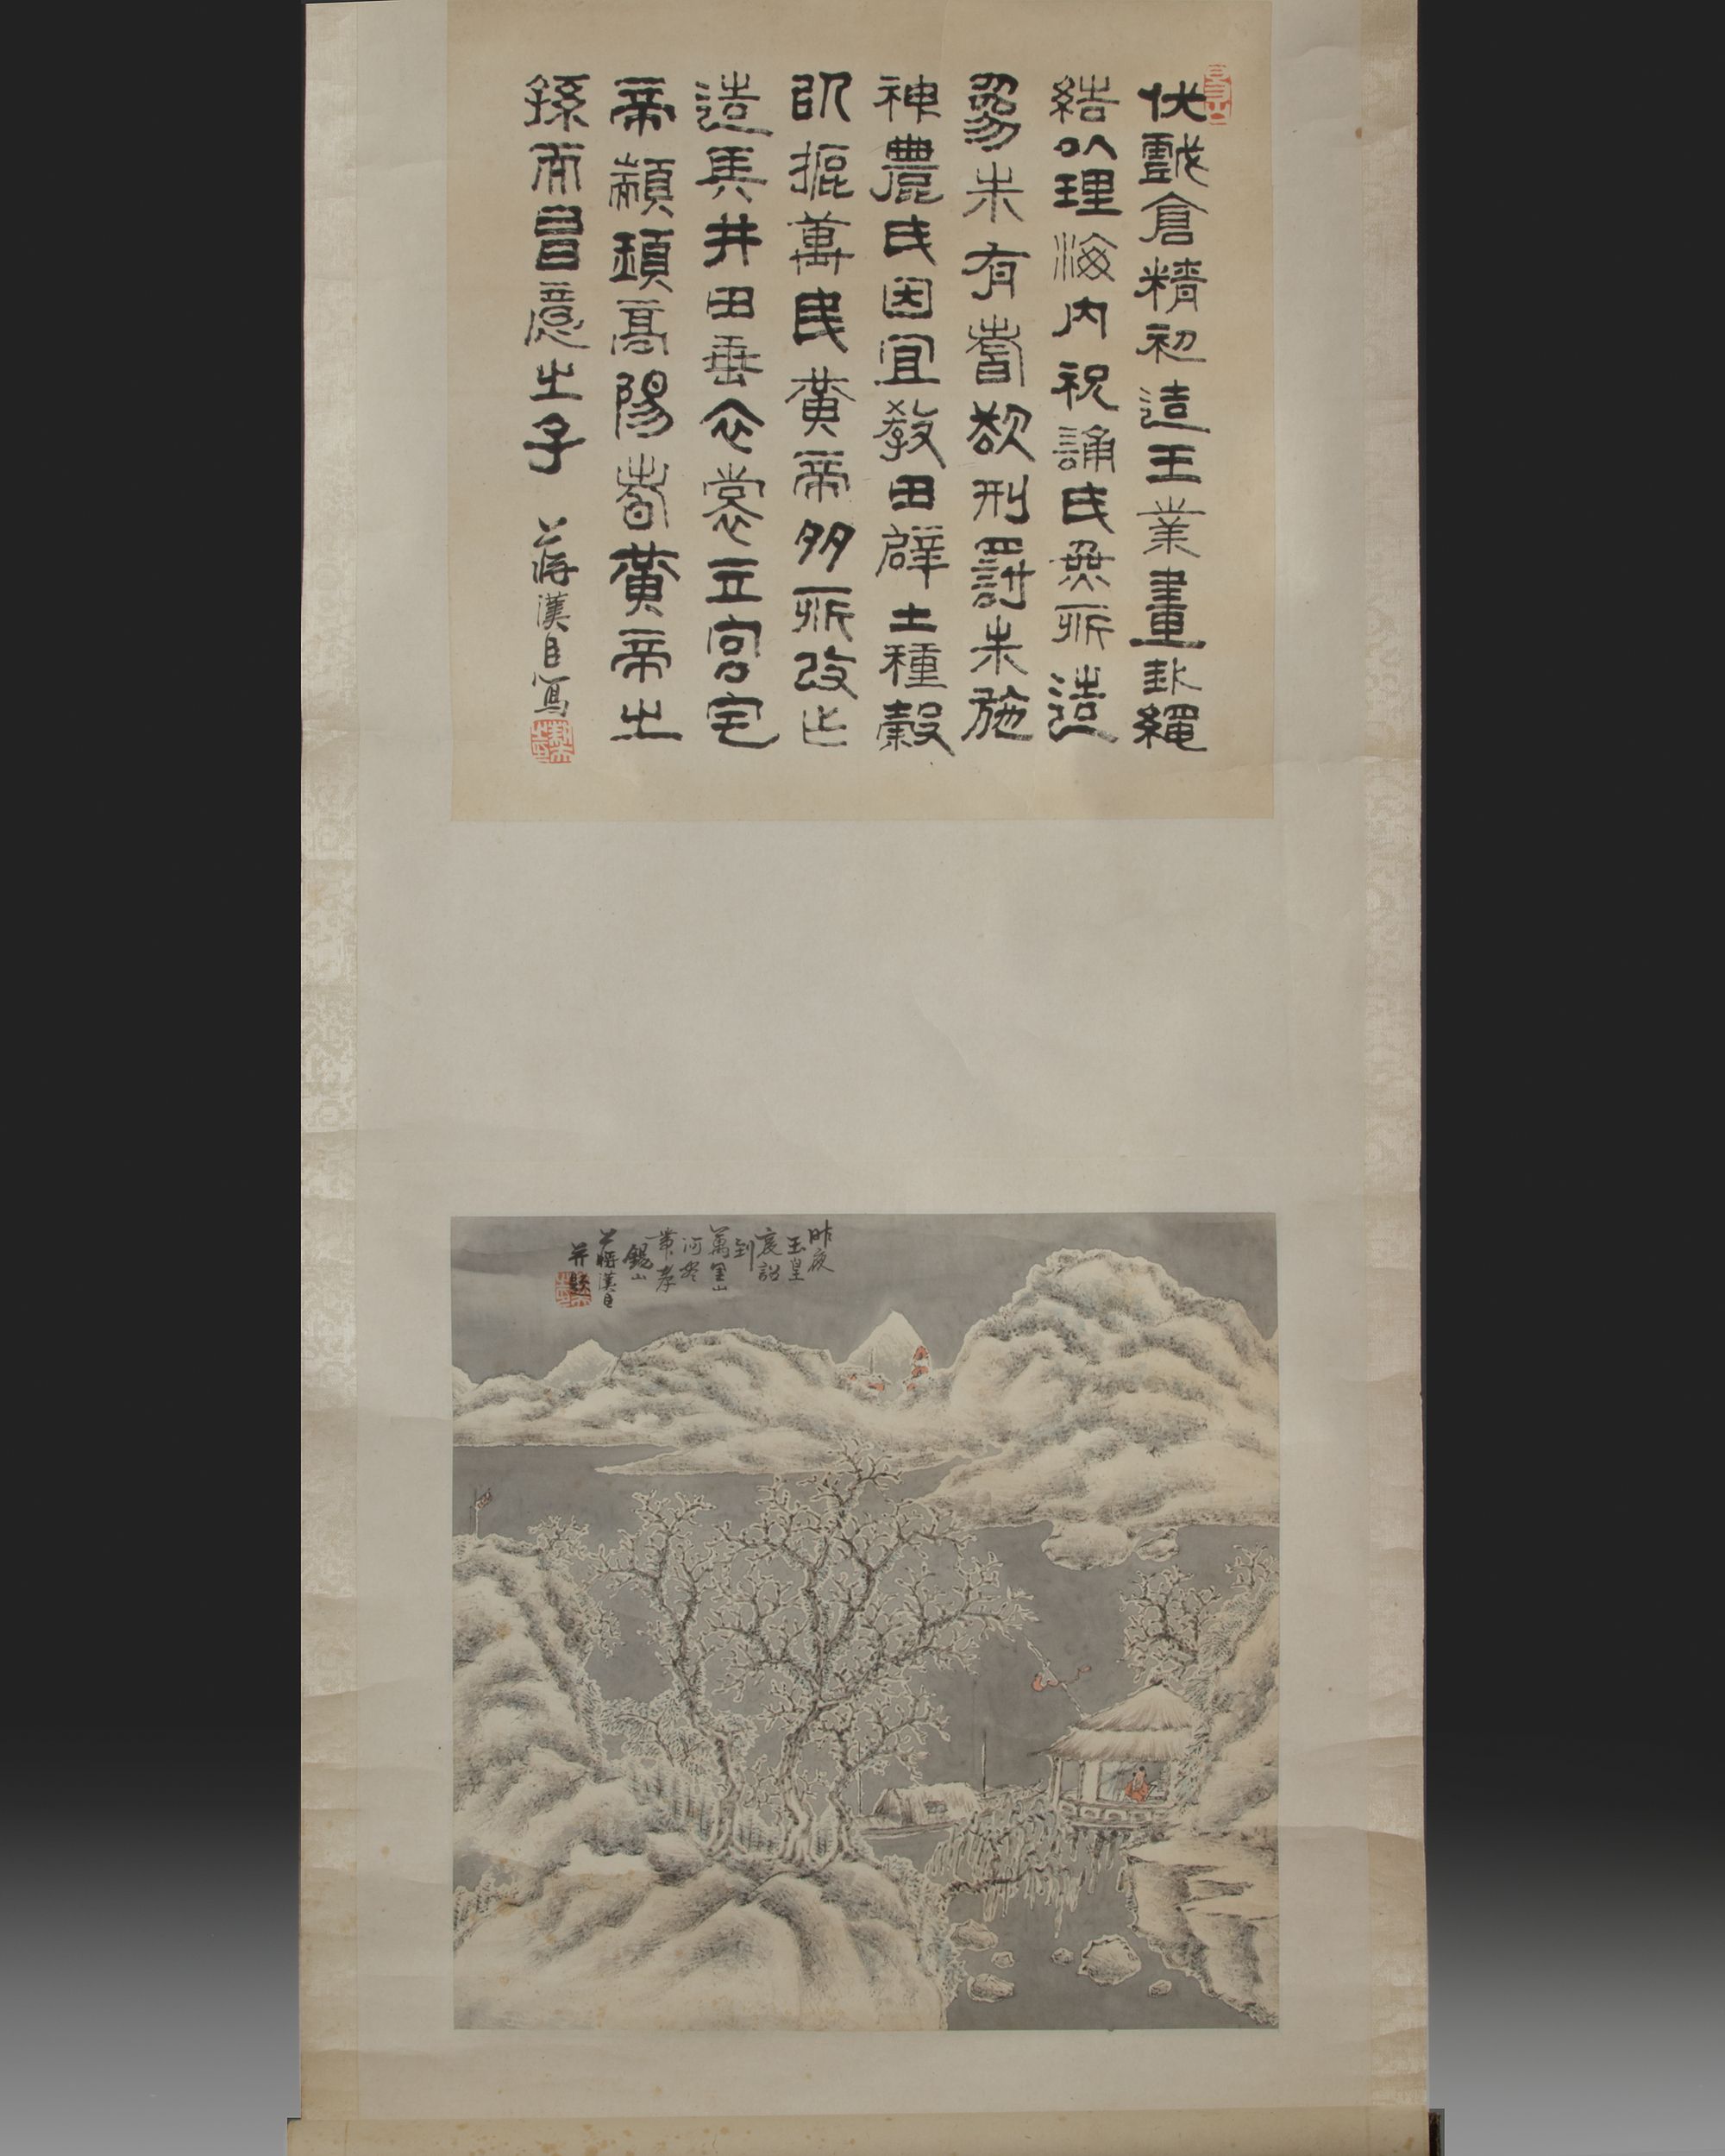 伏戲倉精初造王業畫卦繩
結以理海內祝誦氏無所造
為未有耆欲刑罰未施
神農氏因宜教田辟土種穀
以振萬民黃帝多所改作
造兵井田垂衣裳立宮宅
帝顓頊高陽者黃帝之
孫而昌意之子 蔣漢臣寫
昨夜
玉皇
哀詔
到
萬里山
河尽
帶孝
錫山
蔣漢臣
并題